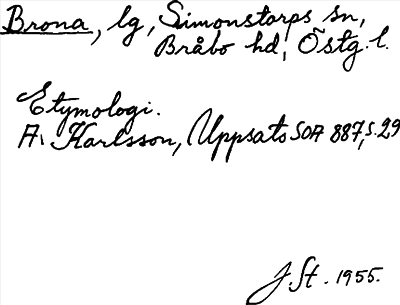 Brona, lg, Simonstorps sn,
Bråbo hd, Östg. l.
Etymologi.
A. Karlsson, Uppsats SOA 887, s. 29
J. St. 1955.